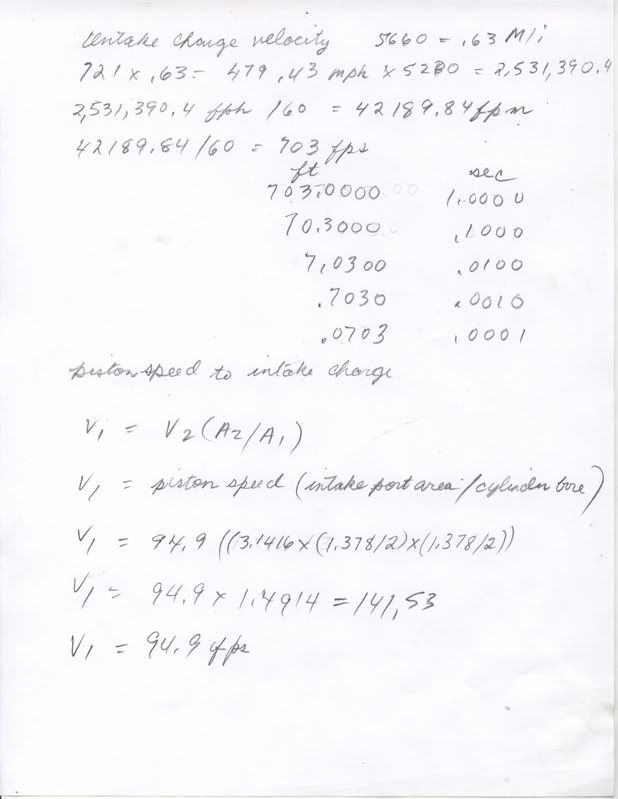 Intake charge velocity 5660 = .63 M/i
721 x .63 = 479.43 mph x 5280 = 2,531,390.4
2,531,390.4 fph /60 = 42189.84 fpm
42189.84/60 = 703 fps
ft sec
703.0000 1.0000
70.3000 .1000
7.0300 .0100
.7030 .0010
.0703 .0001
piston speed to intake charge
V1 = V2 (A2/A1)
V1 = piston speed (intake port area/cylinder bore)
V1 = 94.9 ((3.1416 x (1.378/2) x (1.378/2))
V1 = 94.9 x 1.4914 = 141.53
V1 = 94.9 fps